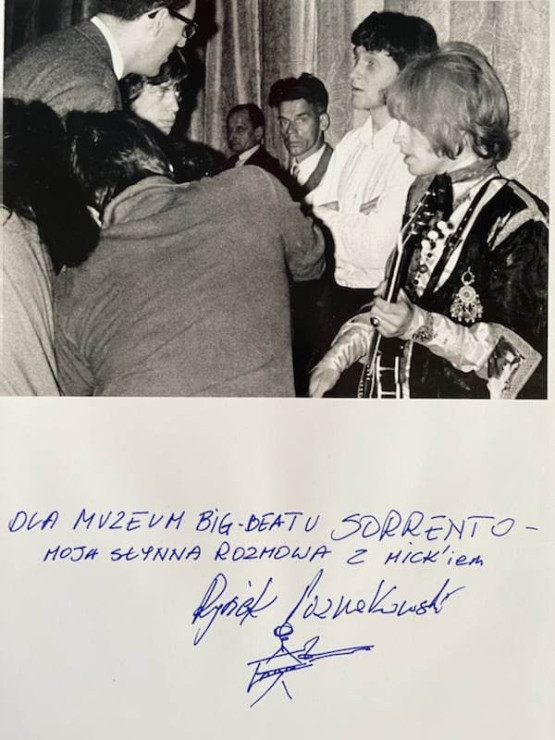 DLA MUZEUM BIG-BEATU SORRENTO -
MOJA SŁYNNA ROZMOWA Z MICK'iem
Rysiek Poznakowski